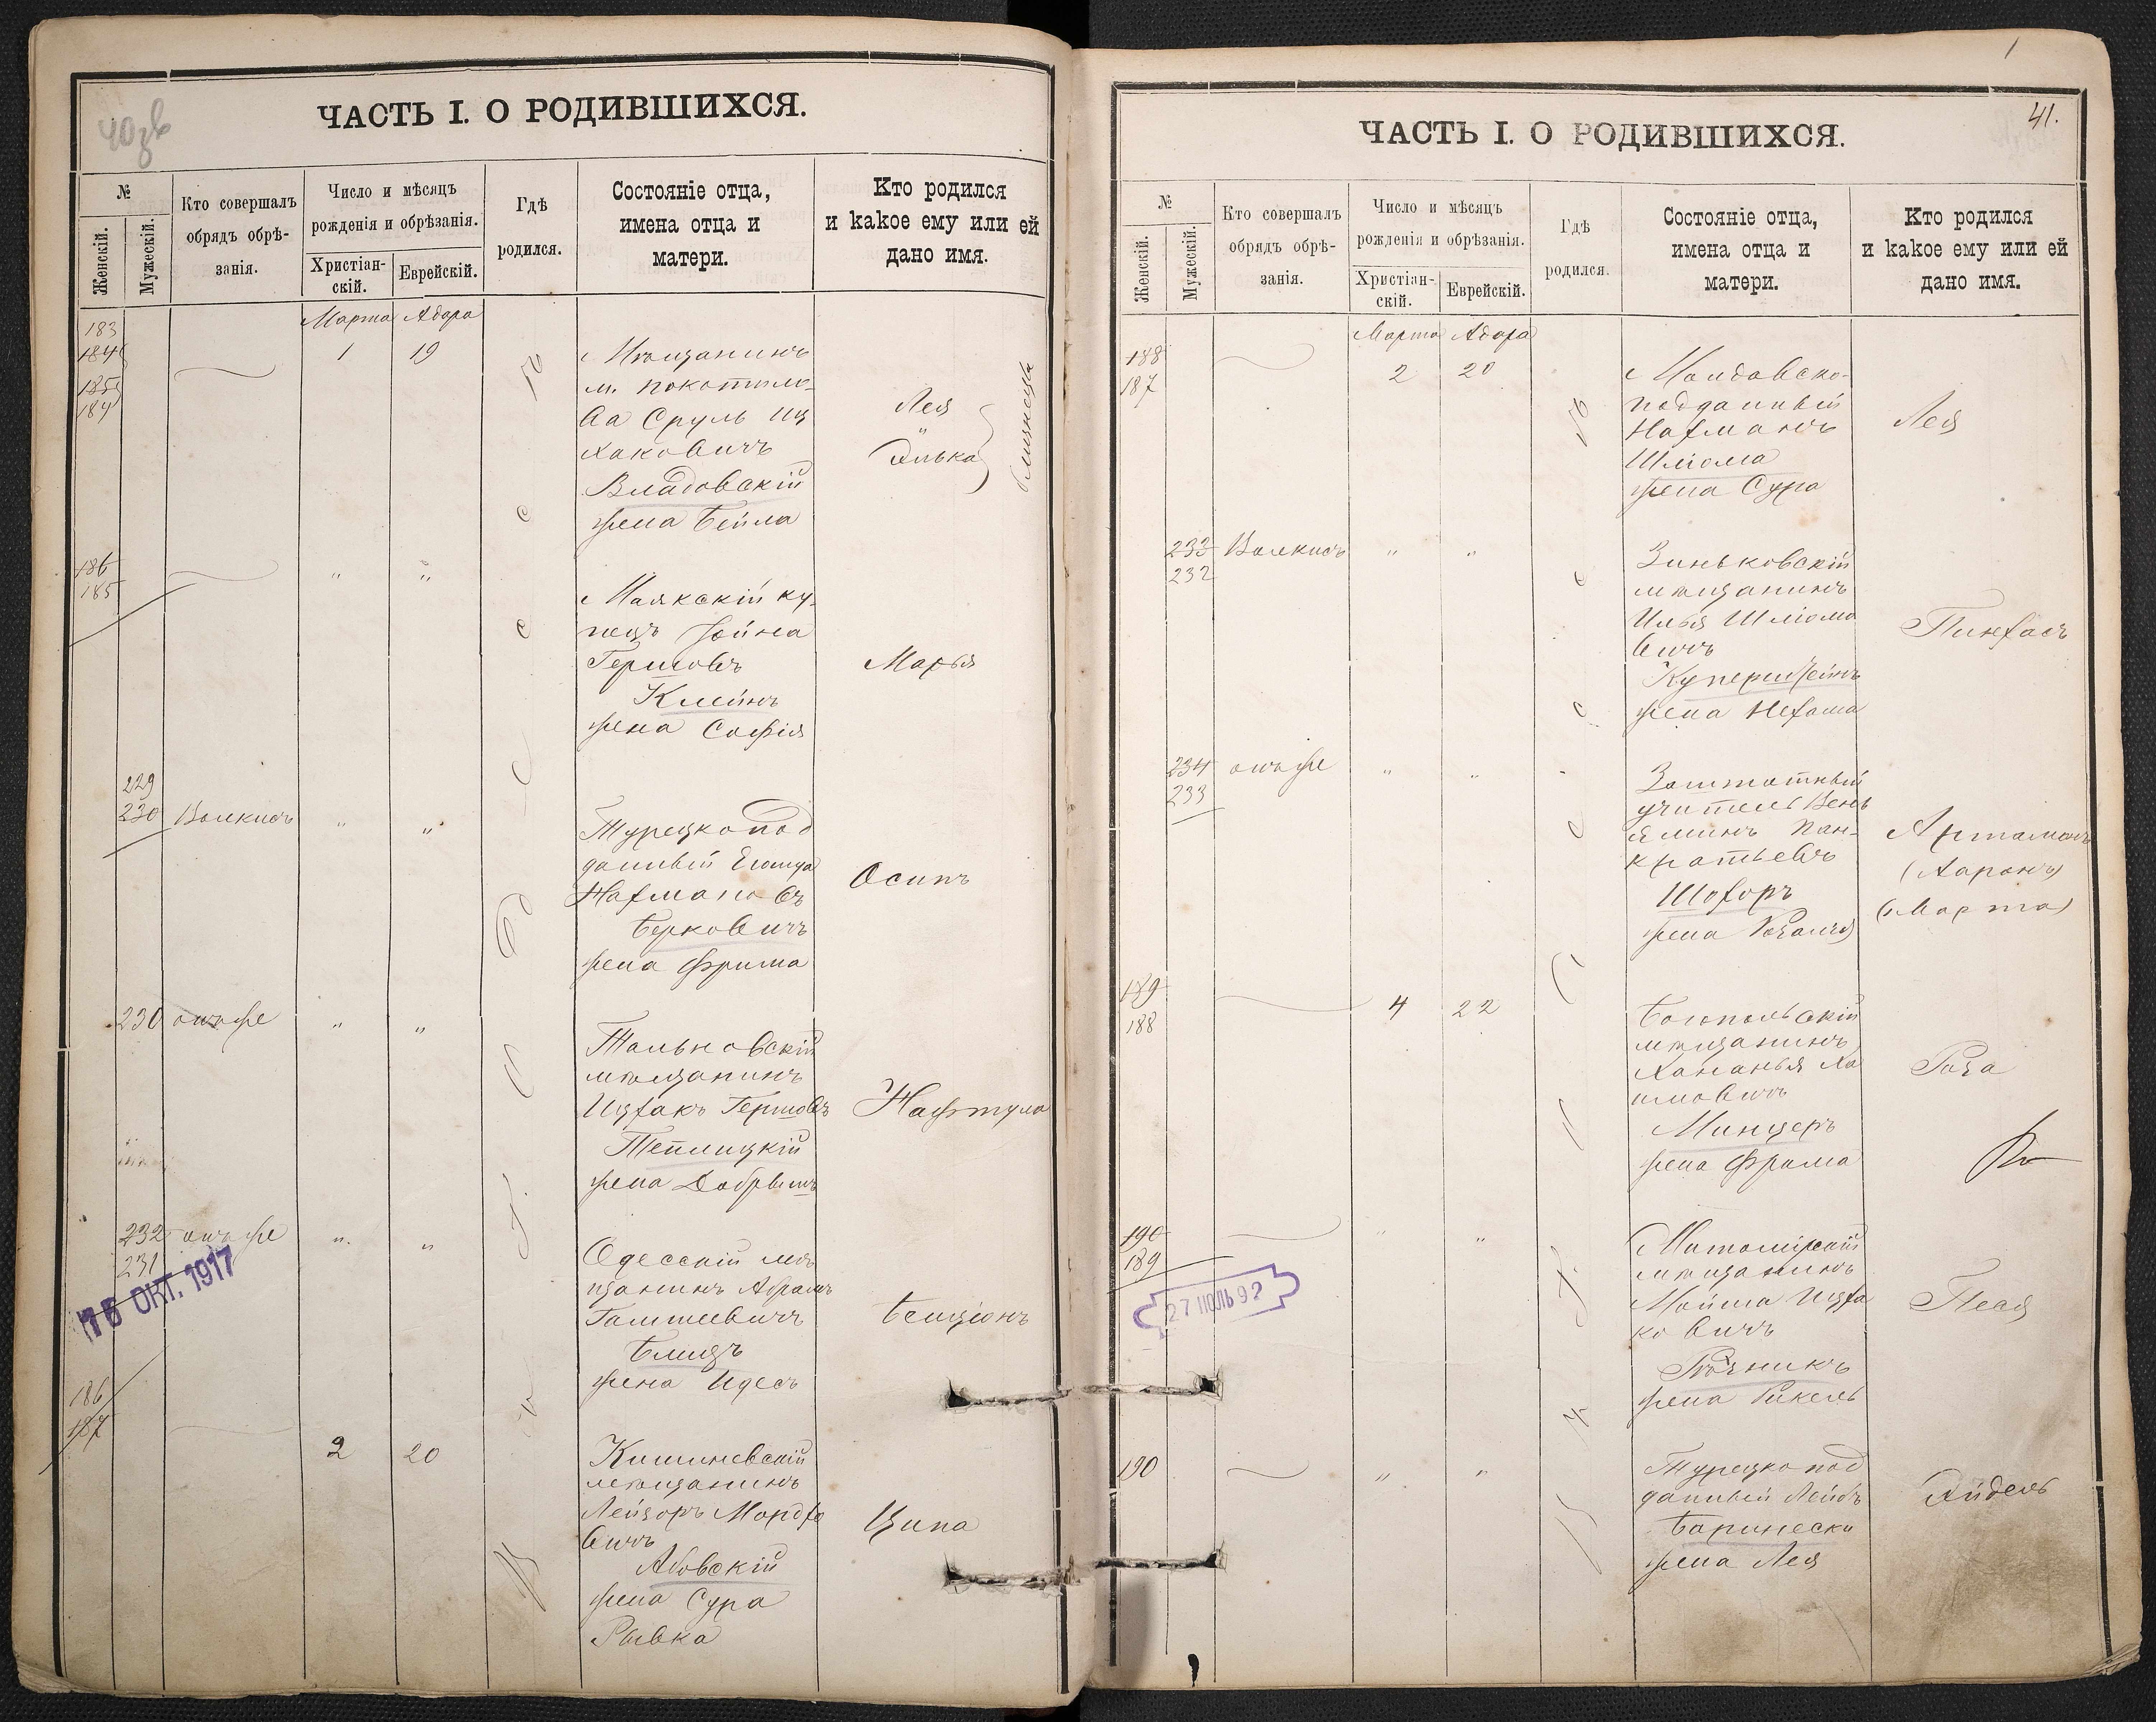 40зв
ЧАСТЬ I. О РОДИВШИХСЯ.
№
Женскій.
Мужескій.
Кто совершалъ
обрядъ обрѣ-
занія.
Число и мѣсяцъ
рожденія и обрѣзанія.
Христіан-
скій.
Еврейскій.
Гдѣ
родился.
Состояніе отца,
имена отца и
матери.
Кто родился
и какое ему или ей
дано имя.
Марта Адара
183
184
185
184
1 19
Мѣщанинъ
м. Покотило-
ва Сруль Иц
хаковичъ
Владовскій
жена Бейла
Лея
и
Элька
близнецы
186
185
" "
Маякскій ку-
пецъ Іойна
Гершовъ
Клейнъ
жена Софія
Марья
229
230 Волкисъ " "
Турецкопод
данный
Нахмановъ
Берковичъ
жена Фрима
Осипъ
230 онъ же " "
Тальновскій
мѣщанинъ
Ицхакъ Гершовъ
Теплицкій
жена Добрышъ
Нафтула
232 онъ же " "
231
16 ОКТ. 1917
Одесскій мѣ
щанинъ Абрамъ
Блицъ
жена Идесъ
Бенціонъ
186
187
2 20
Кишиневскій
мѣщанинъ
Лейзоръ Мордхо
вичъ
Абовскій
жена Сура
Рывка
Ципа
41.
ЧАСТЬ I. О РОДИВШИХСЯ.
№
Женскій.
Мужескій.
Кто совершалъ
обрядъ обрѣ-
занія.
Число и мѣсяцъ
рожденія и обрѣзанія.
Христіан-
скій.
Еврейскій.
Гдѣ
родился.
Состояніе отца,
имена отца и
матери.
Кто родился
и какое ему или ей
дано имя.
Марта Адара
188
187
2 20
Молдавско-
подданный
Нахманъ
Шліома
жена Сура
Лея
233 Волкисъ " "
232
Зиньковскій
мѣщанинъ
Илья Шліомо
вичъ
Куперштейнъ
жена Нехама
Пинхасъ
234 онъ же " "
233
Заштатный
учитель Вень
яминъ Пан-
кратьевъ
Шохоръ
жена Розалія
Артамонъ
(Ааронъ)
(Марта)
189
188
4 22
Богопольскій
мѣщанинъ
Хананья Ха
имовичъ
Минцеръ
жена Фрима
Роза
190
189
" "
27 ІЮЛЬ 92
мѣщанинъ
Мойша Ицха
ковичъ
Рѣзникъ
жена Рикель
Песя
190 " "
Турецкопод
данный Лейбъ
Баринески
жена Лея
Эйдель